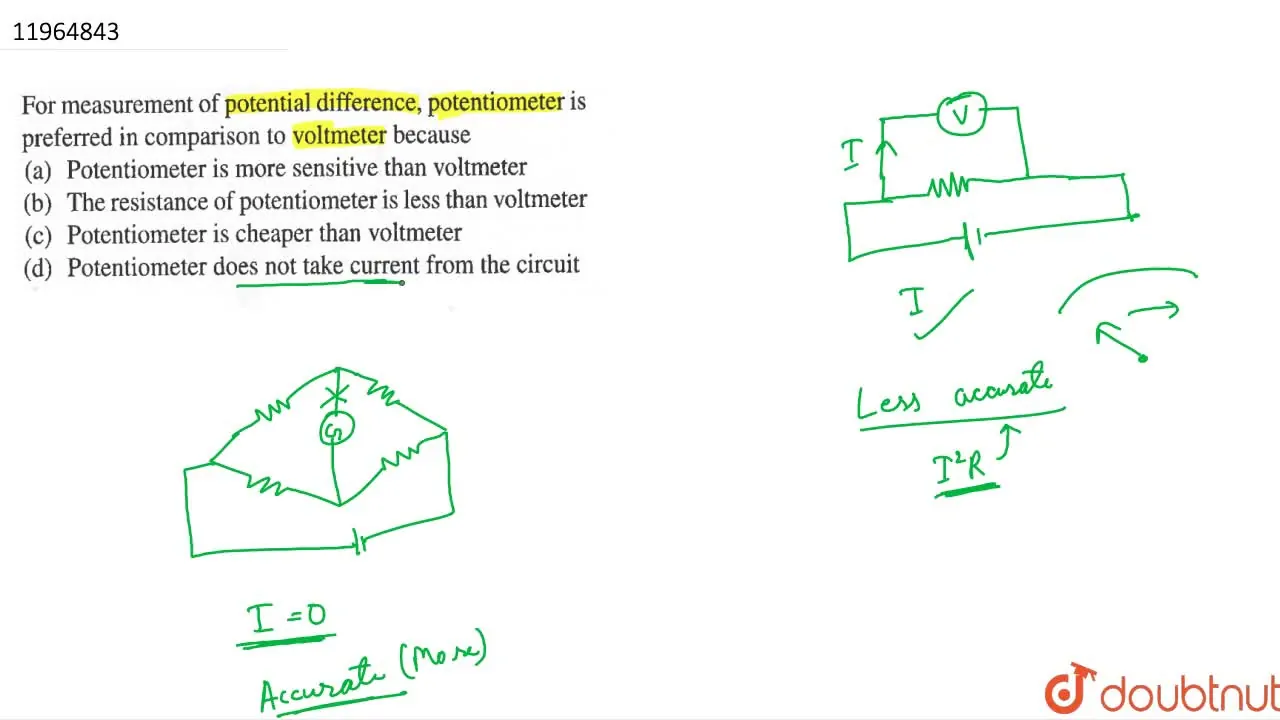 11964843
For measurement of potential difference, potentiometer is
preferred in comparison to voltmeter because
(a) Potentiometer is more sensitive than voltmeter
(b) The resistance of potentiometer is less than voltmeter
(c) Potentiometer is cheaper than voltmeter
(d) Potentiometer does not take current from the circuit
V
I
I
Less accurate
I²R
G
I = 0
Accurate (More)
doubtnut